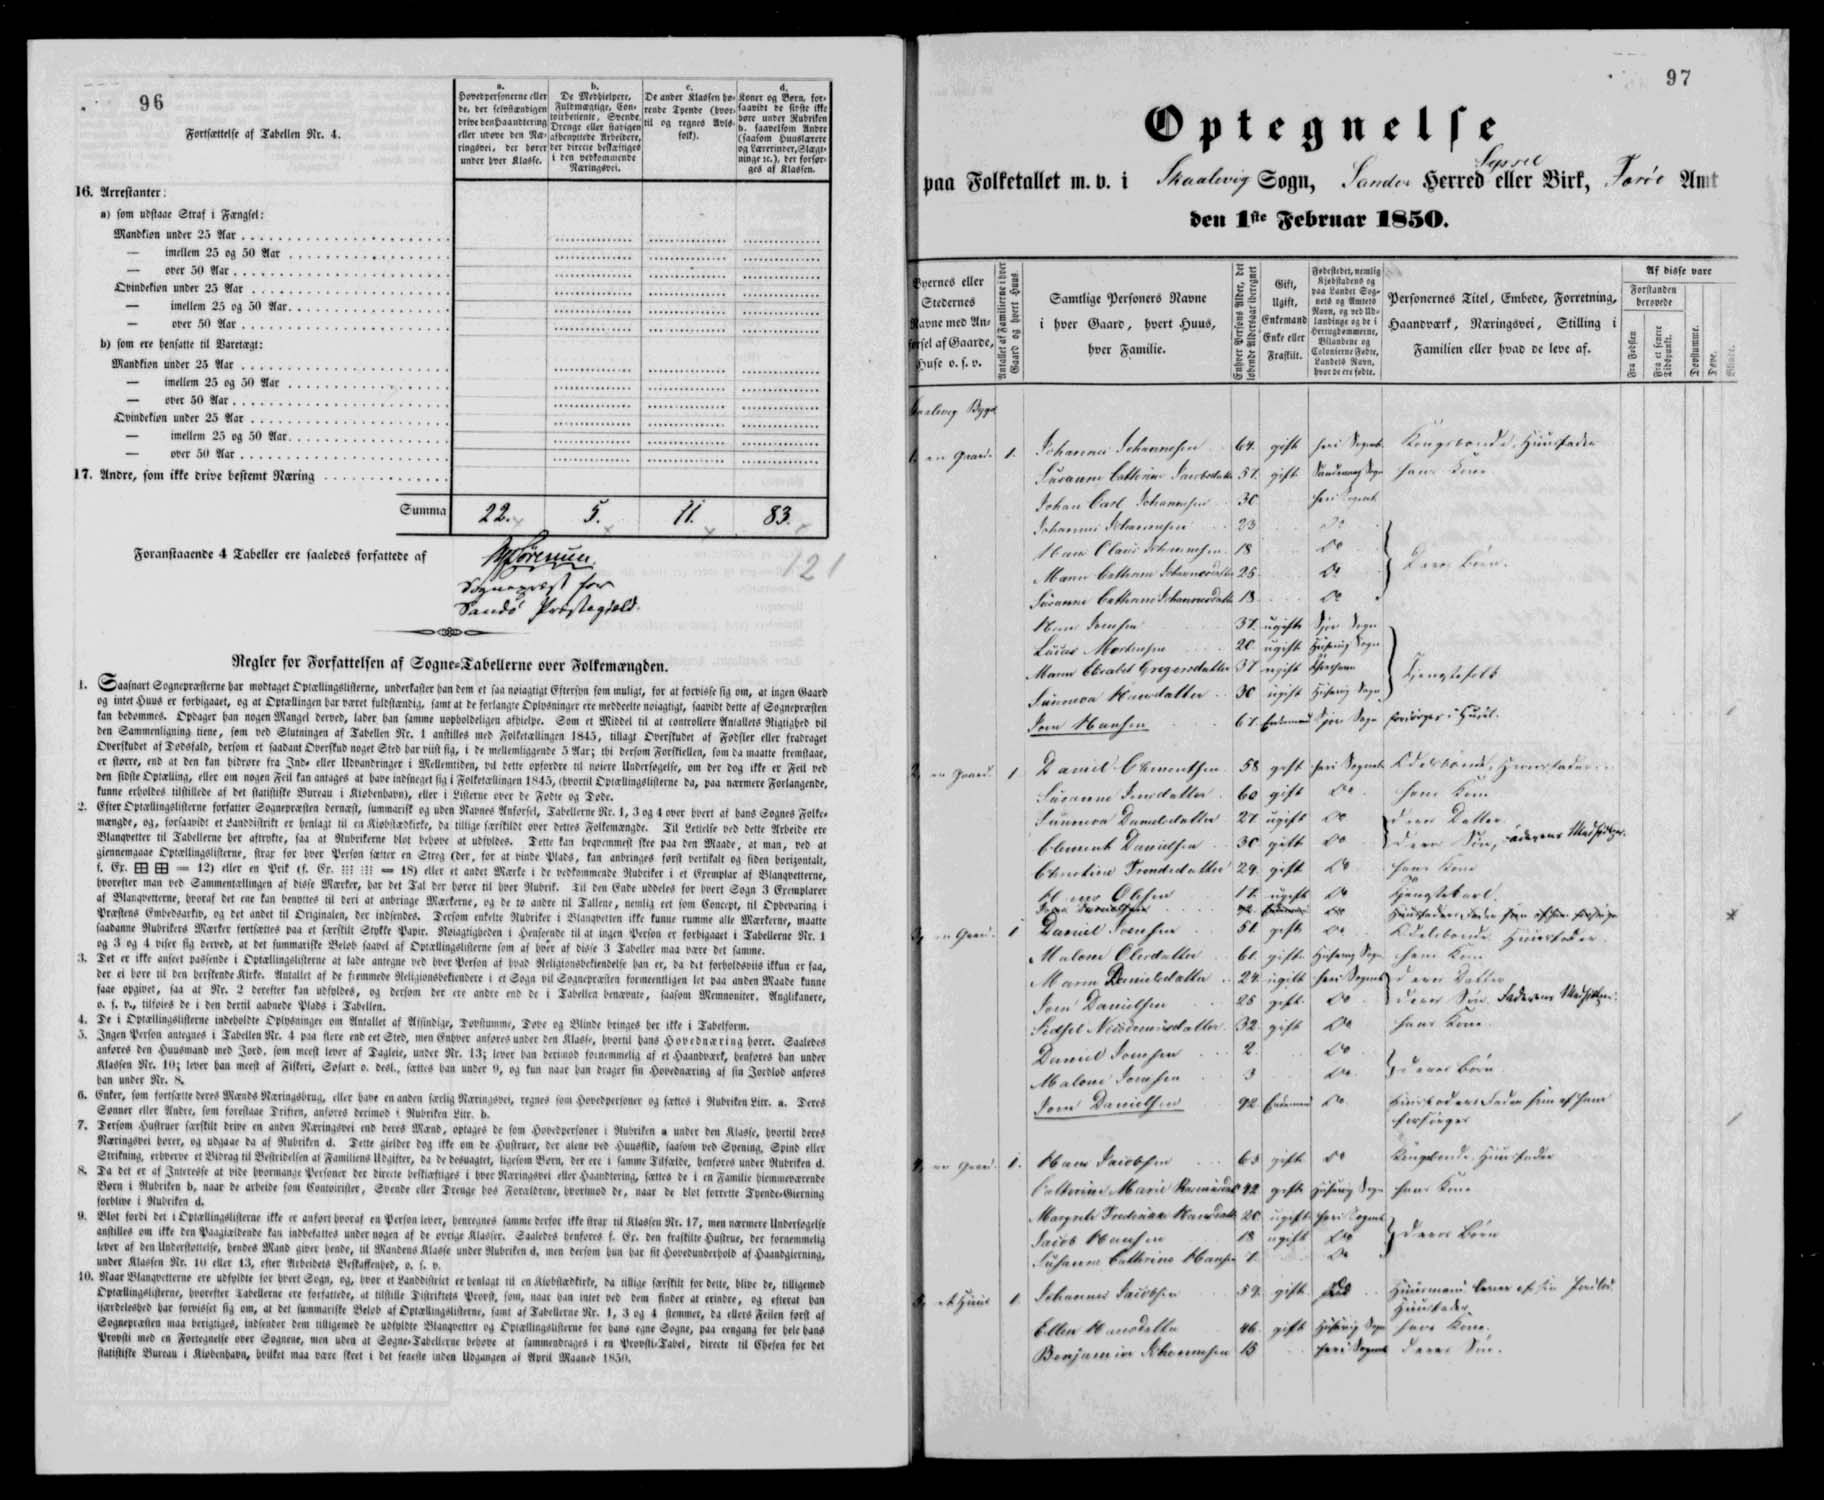 96
Fortsættelse af Tabellen Nr. 4.
a.
Hovedpersonerne eller
de, der selvstændigen
drive den Haandtering
eller udøve den Næ-
ringsvei, der hører
under hver Klasse.
b.
De Medhielpere,
Fuldmægtige, Con-
toirbetiente, Svende,
Drenge eller stadigen
afbenyttede Arbeidere,
der directe beskæftiges
i den vedkommende
Næringsvei.
c.
De under Klassen hø-
rende Tyende (hvor-
til og regnes Avls-
folk).
d.
Koner og Børn, for-
saavidt de sidste ikke
høre under Rubriken
b. saavelsom Andre
(saasom Huuslærere
og Lærerinder, Slægt-
ninge ec.), der forsør-
ges af Klassen.
16. Arrestanter:
a) som udstaae Straf i Fængsel:
Mandkiøn under 25 Aar
— imellem 25 og 50 Aar
— over 50 Aar
Qvindekiøn under 25 Aar
— imellem 25 og 50 Aar
— over 50 Aar
b) som ere hensatte til Varetægt:
Mandkiøn under 25 Aar
— imellem 25 og 50 Aar
— over 50 Aar
Qvindekiøn under 25 Aar
— imellem 25 og 50 Aar
— over 50 Aar
17. Andre, som ikke drive bestemt Næring
Summa 22. 5. 11. 83.
Foranstaaende 4 Tabeller ere saaledes forfattede af
Sørensen.
121
Sognepræst for
Sandø Præstegjeld.
Regler for Forfattelsen af Sogne-Tabellerne over Folkemængden.
1. Saasnart Sognepræsterne har modtaget Optællingslisterne, underkaster han dem et saa nøiagtigt Eftersyn som muligt, for at forvisse sig om, at ingen Gaard
og intet Huus er forbigaaet, og at Optællingen har været fuldstændig, samt at de forlangte Oplysninger ere meddeelte nøiagtigt, saavidt dette af Sognepræsten
kan bedømmes. Opdager han nogen Mangel derved, lader han samme uopholdeligen afhielpe. Som et Middel til at controllere Antallets Rigtighed vil
den Sammenligning tiene, som ved Slutningen af Tabellen Nr. 1 anstilles med Folketællingen 1845, tillagt Overskudet af Fødsler eller fradraget
Overskudet af Dødsfald, dersom et saadant Overskud noget Sted har viist sig, i de mellemliggende 5 Aar; thi dersom Forskiellen, som da maatte fremstaae,
er større, end at den kan hidrøre fra Ind- eller Udvandringer i Mellemtiden, vil dette opfordre til nøiere Undersøgelse, om der dog ikke er Feil ved
den sidste Optælling, eller om nogen Feil kan antages at have indsneget sig i Folketællingen 1845, (hvortil Optællingslisterne da, paa nærmere Forlangende,
kunne erholdes tilstillede af det statistiske Bureau i Kiøbenhavn), eller i Listerne over de Fødte og Døde.
2. Efter Optællingslisterne forfatter Sognepræsten dernæst, summarisk og uden Navnes Anførsel, Tabellerne Nr. 1, 3 og 4 over hvert af hans Sognes Folke-
mængde, og, forsaavidt et Landdistrikt er henlagt til en Kiøbstædkirke, da tillige særskildt over dettes Folkemængde. Til Lettelse ved dette Arbeide ere
Blanqvetter til Tabellerne her aftrykte, saa at Rubrikerne blot behøve at udfyldes. Dette kan beqvemmest skee paa den Maade, at man, ved at
giennemgaae Optællingslisterne, strax for hver Person sætter en Streg (der, for at vinde Plads, kan anbringes først vertikalt og siden horizontalt,
f. Ex. = 12) eller en Prik (f. Ex. = 18) eller et andet Mærke i de vedkommende Rubriker i et Exemplar af Blanqvetterne,
hvorefter man ved Sammentællingen af disse Mærker, har det Tal der hører til hver Rubrik. Til den Ende uddeles for hvert Sogn 3 Exemplarer
af Blanqvetterne, hvoraf det ene kan benyttes til deri at anbringe Mærkerne, og de to andre til Tallene, nemlig eet som Concept, til Opbevaring i
Præstens Embedsarkiv, og det andet til Originalen, der indsendes. Dersom enkelte Rubriker i Blanqvetten ikke kunne rumme alle Mærkerne, maatte
saadanne Rubrikers Mærker fortsættes paa et særskilt Stykke Papir. Nøiagtigheden i Henseende til at ingen Person er forbigaaet i Tabellerne Nr. 1
og 3 og 4 viser sig derved, at det summariske Beløb saavel af Optællingslisterne som af hver af disse 3 Tabeller maa være det samme.
3. Det er ikke anseet passende i Optællingslisterne at lade antegne ved hver Person af hvad Religionsbekiendelse han er, da det forholdsviis ikkun er faa,
der ei høre til den herskende Kirke. Antallet af de fremmede Religionsbekiendere i et Sogn vil Sognepræsten formeentligen let paa anden Maade kunne
faae opgivet, saa at Nr. 2 derefter kan udfyldes, og dersom der ere andre end de i Tabellen benævnte, saasom Memnoniter, Anglikanere,
o. s. v., tilføies de i den dertil aabnede Plads i Tabellen.
4. De i Optællingslisterne indeholdte Oplysninger om Antallet af Afsindige, Døvstumme, Døve og Blinde bringes her ikke i Tabelform.
5. Ingen Person antegnes i Tabellen Nr. 4 paa flere end eet Sted, men Enhver anføres under den Klasse, hvortil hans Hovednæring hører. Saaledes
anføres den Huusmand med Jord, som meest lever af Dagleie, under Nr. 13; lever han derimod fornemmelig af et Haandværk, henføres han under
Klassen Nr. 10; lever han meest af Fiskeri, Søfart o. desl., sættes han under 9, og kun naar han drager sin Hovednæring af sin Jordlod anføres
han under Nr. 8.
6. Enker, som fortsætte deres Mænds Næringsbrug, eller have en anden særlig Næringsvei, regnes som Hovedpersoner og sættes i Rubriken Litr. a. Deres
Sønner eller Andre, som forestaae Driften, anføres derimod i Rubriken Litr. b.
7. Dersom Hustruer særskilt drive en anden Næringsvei end deres Mænd, optages de som Hovedpersoner i Rubriken a under den Klasse, hvortil deres
Næringsvei hører, og udgaae da af Rubriken d. Dette gielder dog ikke om de Hustruer, der alene ved Huusflid, saasom ved Syening, Spind eller
Strikning, erhverve et Bidrag til Bestridelsen af Familiens Udgifter, da de desuagtet, ligesom Børn, der ere i samme Tilfælde, henføres under Rubriken d.
8. Da det er af Interesse at vide hvormange Personer der directe beskiæftiges i hver Næringsvei eller Haandtering, sættes de i en Familie hiemmeværende
Børn i Rubriken b, naar de arbeide som Contoirister, Svende eller Drenge hos Forældrene, hvorimod de, naar de blot forrette Tyende-Gierning
forblive i Rubriken d.
9. Blot fordi det i Optællingslisterne ikke er anført hvoraf en Person lever, henregnes samme derfor ikke strax til Klassen Nr. 17, men nærmere Undersøgelse
anstilles om ikke den Paagiældende kan indbefattes under nogen af de øvrige Klasser. Saaledes henføres f. Ex. den fraskilte Hustrue, der fornemmelig
lever af den Understøttelse, hendes Mand giver hende, til Mandens Klasse under Rubriken d, men dersom hun har sit Hovedunderhold af Haandgierning,
under Klassen Nr. 10 eller 13, efter Arbeidets Beskaffenhed, o. s. v.
10. Naar Blanqvetterne ere udfyldte for hvert Sogn, og, hvor et Landdistrict er henlagt til en Kiøbstædkirke, da tillige særskilt for dette, blive de, tilligemed
Optællingslisterne, hvorefter Tabellerne ere forfattede, at tilstille Distriktets Provst, som, naar han intet ved dem finder at erindre, og efterat han
isærdeleshed har forvisset sig om, at det summariske Beløb af Optællingslisterne, samt af Tabellerne Nr. 1, 3 og 4 stemmer, da ellers Feilen først af
Sognepræsten maa berigtiges, indsender dem tilligemed de udfyldte Blanqvetter og Optællingslisterne for hans egne Sogne, paa eengang for hele hans
Provsti med en Fortegnelse over Sognene, men uden at Sogne-Tabellerne behøve at sammendrages i en Provsti-Tabel, directe til Chefen for det
statistiske Bureau i Kiøbenhavn, hvilket maa være skeet i det seneste inden Udgangen af April Maaned 1850.
97
Optegnelse
Syssel
paa Folketallet m. v. i Skaalevig Sogn, Sandø Herred eller Birk, Færøe Amt
den 1ste Februar 1850.
Byernes eller
Stedernes
Navne med An-
førsel af Gaarde,
Huse o. s. v.
Antallet af Familierne i hver
Gaard og hvert Huus.
Samtlige Personers Navne
i hver Gaard, hvert Huus,
hver Familie.
Enhver Persons Alder, det
løbende Aldersaar iberegnet
Gift,
Ugift,
Enkemand
Enke eller
Fraskilt.
Fødestedet, nemlig
Kjøbstadens og
paa Landet Sog-
nets og Amtets
Navn, og ved Ud-
landinge og de i
Hertugdømmerne,
Bilandene og
Colonierne Fødte,
Landets Navn,
hvor de ere fødte.
Personernes Titel, Embede, Forretning,
Haandværk, Næringsvei, Stilling i
Familien eller hvad de leve af.
Af disse vare
Forstanden
berøvede
Fra Fødslen
Fra et senere
Tidspunkt.
Døvstumme.
Døve.
Blinde.
Skaalevig Bygd
1. en Gaard. 1. Johannes Johannesen 64. gift her i Sognet Kongsbonde, Huusfader
Susanne Catherine Jacobsdatter 57. gift Sands Sogn hans Kone
Johan Carl Johannesen 30 her i Sognet
Johannes Johannesen 23 Do
Hans Claus Johannesen 18 Do Deres Børn.
Maren Catherine Johannesdatter 25 Do
Susanne Catherine Johannesdatter 18 Do
Hans Joensen 37. ugift Sogn
Lucas Mortensen 20. ugift Husevig Sogn
Maren Elisabet Gregersdatter 37 ugift Tjenestefolk
Sunneva Hansdatter 30 ugift Husevig Sogn
Joen Hansen 67. Enkemand Sogn forsørges i Huset.
2. en Gaard. 1 Daniel Clementsen 58 gift her i Sognet Odelsbonde, Huusfader
Susanne Jensdatter 60 gift Do hans Kone
Sunneva Danielsdatter 27 ugift Do deres Datter
Clement Danielsen 30 gift Do deres Søn, Faderens Medhjelper.
Christine Trondsdatter 29. gift Do hans Kone
Olesen ugift Do Tjenestekarl.
Joen Danielsen 92. Enkemand Do
3. en Gaard. 1 Daniel Joensen 51. gift Do Odelsbonde Huusfader.
Malene Olesdatter 61. gift Husevig Sogn hans Kone
Maren Danielsdatter 24. ugift her i Sognet deres Datter
Joen Danielsen 25 gift Do deres Søn, Faderens Medhjelper.
Sidsel Nicodemusdatter 32. gift Do hans Kone
Daniel Joensen 2. Do
Malene Joensen 3 Do deres Børn.
Joen Danielsen 92 Enkemand Do Huusfaderens Fader som af ham
forsørges
4. en Gaard. 1. Hans Jacobsen 63 gift Do Kongsbonde, Huusfader
Catherine Marie Rasmusdatter 42 gift Husevig Sogn hans Kone
Margrete Fredrikke Hansdatter 20. ugift her i Sognet
Jacob Hansen 18 ugift Do deres Børn
Susanne Catherine Hansen Do
5. et Huus 1. Johannes Jacobsen 59. gift Do Huusmand, lever af sin Jordlod.
Huusfader
Ellen Hansdatter 46. gift Husevig Sogn hans Kone.
Benjamin Johannesen 13 her i Sognet deres Søn.